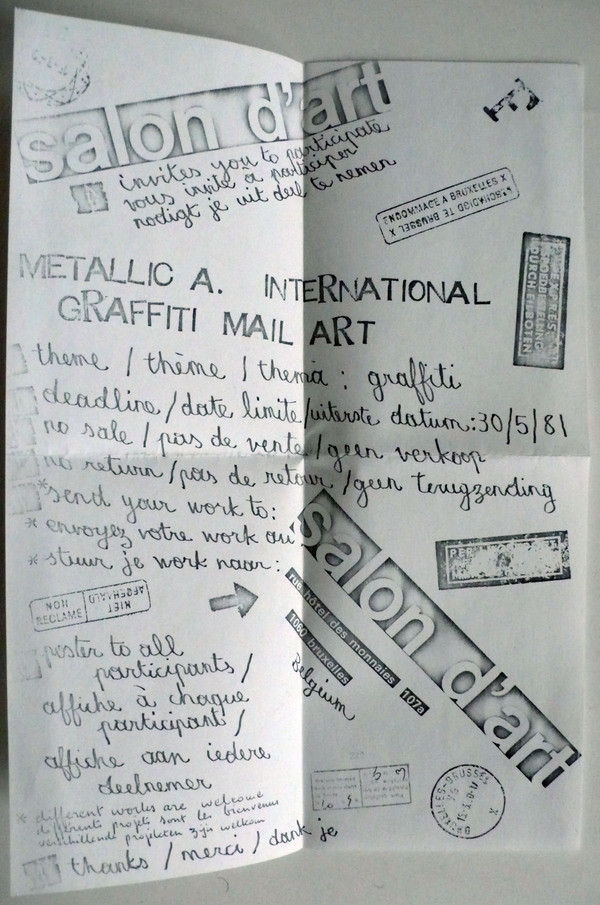 salon d'art
invites you to participate
vous invite a participer
nodigt je uit deel te nemen
ENDOMMAGE A BRUXELLES X
BESCHADIGD TE BRUSSEL X
METALLIC A. INTERNATIONAL
GRAFFITI MAIL ART
theme / thème / thema : graffiti
deadline / date limite / uiterste datum: 30/5/81
no sale / pas de vente / geen verkoop
no return / pas de retour / geen terugzending
* send your work to:
* envoyez votre work au
* stuur je work naar:
salon d'art
rue hôtel des monnaies 107a
1060 bruxelles
Belgium
NON RECLAME
NIET AFGEHAALD
poster to all
participants /
affiche à chaque
participant /
affiche aan iedere
deelnemer
* different works are welcome
différents projets sont les bienvenus
verschillende projecten zijn welkom
thanks / merci / dank je
BRUXELLES-BRUSSEL